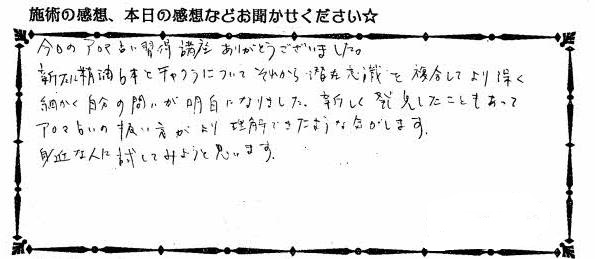 施術の感想、本日の感想などお聞かせください☆
今日のアロマ占い習得講座ありがとうございました。
新たに精油6本とチャクラについてそれから潜在意識と複合してより深く
細かく自分の問いが明白になりました。新しく発見したこともあって
アロマ占いの扱い方がより理解できたような気がします。
身近な人に試してみようと思います。